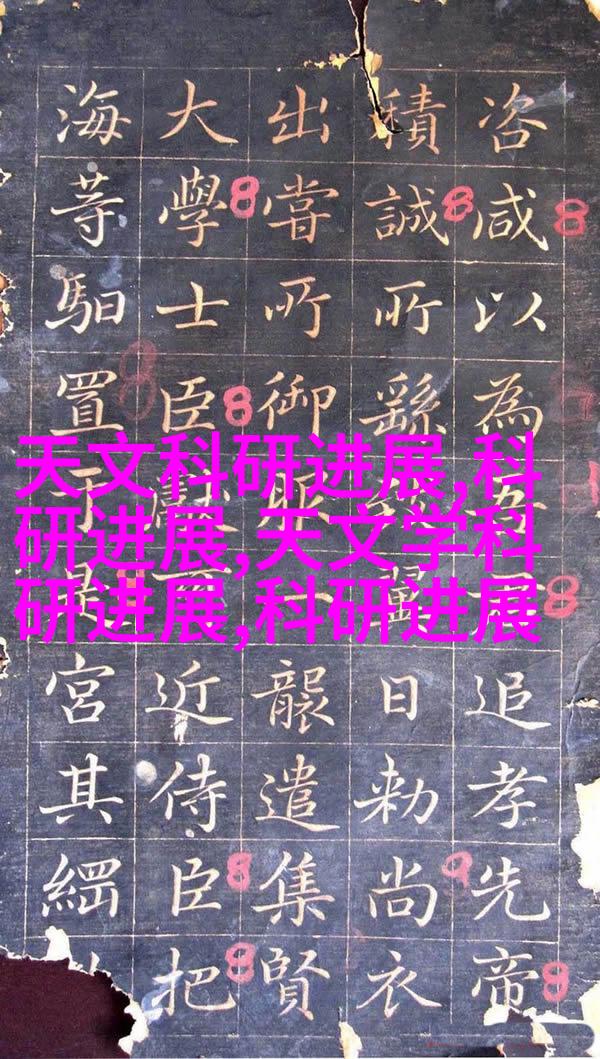 天文科研进展,科
研进展,天文学科
研进展,科研进展
咨咸以為追孝先帝
積誠所繇日勅尚衣
出嘗所御服一襲遣集賢
大學士臣近侍臣把
海等馹置于是宮其綱